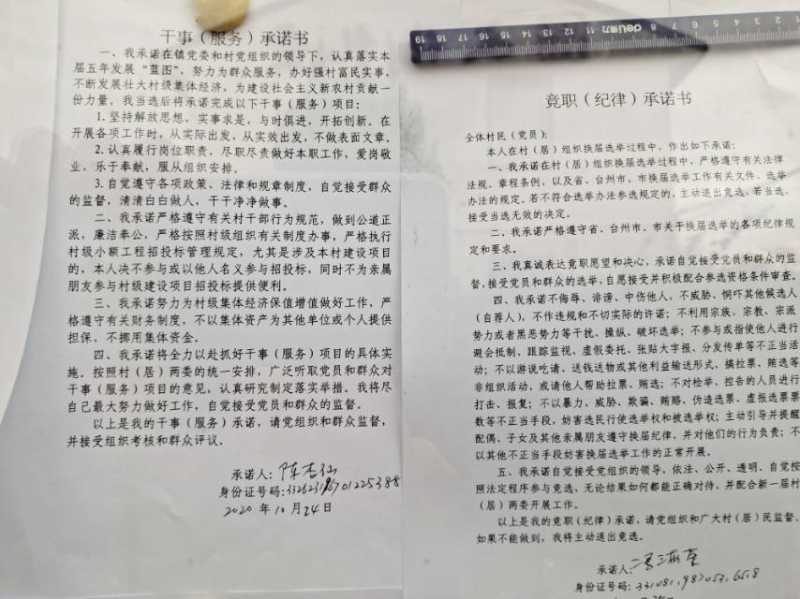 干事（服务）承诺书
一、我承诺在镇党委和村党组织的领导下，认真落实本
届五年发展“蓝图”，努力为群众服务，办好强村富民实事，
不断发展壮大村级集体经济，为建设社会主义新农村贡献一
份力量，我当选后将承诺完成以下干事（服务）项目：
1.坚持解放思想，实事求是，与时俱进，开拓创新。在
开展各项工作时，从实际出发，从实效出发，不做表面文章。
2.认真履行岗位职责，尽职尽责做好本职工作，爱岗敬
业，乐于奉献，服从组织安排。
3.自觉遵守各项政策、法律和规章制度，自觉接受群众
的监督，清清白白做人，干干净净做事。
二、我承诺严格遵守有关村干部行为规范，做到公道正
派，廉洁奉公，严格按照村级组织有关制度办事，严格执行
村级小额工程招投标管理规定，尤其是涉及本村建设项目
的，本人决不参与或以他人名义参与招投标，同时不为亲属
朋友参与村级建设项目招投标提供便利。
三、我承诺努力为村级集体经济保值增值做好工作，严
格遵守有关财务制度，不以集体资产为其他单位或个人提供
担保、不挪用集体资金。
四、我承诺将全力以赴抓好干事（服务）项目的具体实
施。按照村（居）两委的统一安排，广泛听取党员和群众对
干事（服务）项目的意见，认真研究制定落实举措。我将尽
自己最大努力做好工作，自觉接受党员和群众的监督。
以上是我的干事（服务）承诺，请党组织和群众监督，
并接受组织考核和群众评议。
承诺人：陈
身份证号码：
2020年10月24日
deli
竟职（纪律）承诺书
全体村民（党员）：
本人在村（居）组织换届选举过程中，作出如下承诺：
一、我承诺在村（居）组织换届选举过程中，严格遵守有关法律
法规、章程条例，以及省、台州市、市换届选举工作有关文件、选举
办法的规定。若不符合选举办法参选规定的，主动退出竞选，若当选，
接受当选无效的决定。
二、我承诺严格遵守省、台州市、市关于换届选举的各项纪律规
定和要求。
三、我真诚表达竞职愿望和决心，承诺自觉接受党员和群众的监
督，接受党员和群众的选举，自愿接受并积极配合参选资格条件审查。
四、我承诺不侮辱、诽谤、中伤他人，不威胁、恫吓其他候选人
（自荐人），不作违规和不切实际的许诺；不利用宗族、宗教、宗派
势力或者黑恶势力等干扰、操纵、破坏选举；不参与或指使他人进行
避会抵制、跟踪监视、虚假委托、张贴大字报、分发传单等不正当活
动；不以游说吃请、送钱送物或其他利益输送形式，搞拉票、贿选等
非组织活动，或请他人帮助拉票、贿选；不对检举、控告的人员进行
打击、报复；不以暴力、威胁、欺骗、贿赂、伪造选票、虚报选票票
数等不正当手段，妨害选民行使选举权和被选举权；主动引导并提醒
配偶、子女及其他亲属朋友遵守换届纪律，并对他们的行为负责；不
以其他不正当手段妨害换届选举工作的正常开展。
五、我承诺自觉接受党组织的领导，依法、公开、透明、自觉按
照法定程序参与竞选，无论结果如何都能正确对待，并配合新一届村
（居）两委开展工作。
以上是我的竟职（纪律）承诺，请党组织和广大村（居）民监督，
如果不能做到，我将主动退出竞选。
承诺人：
身份证号码：